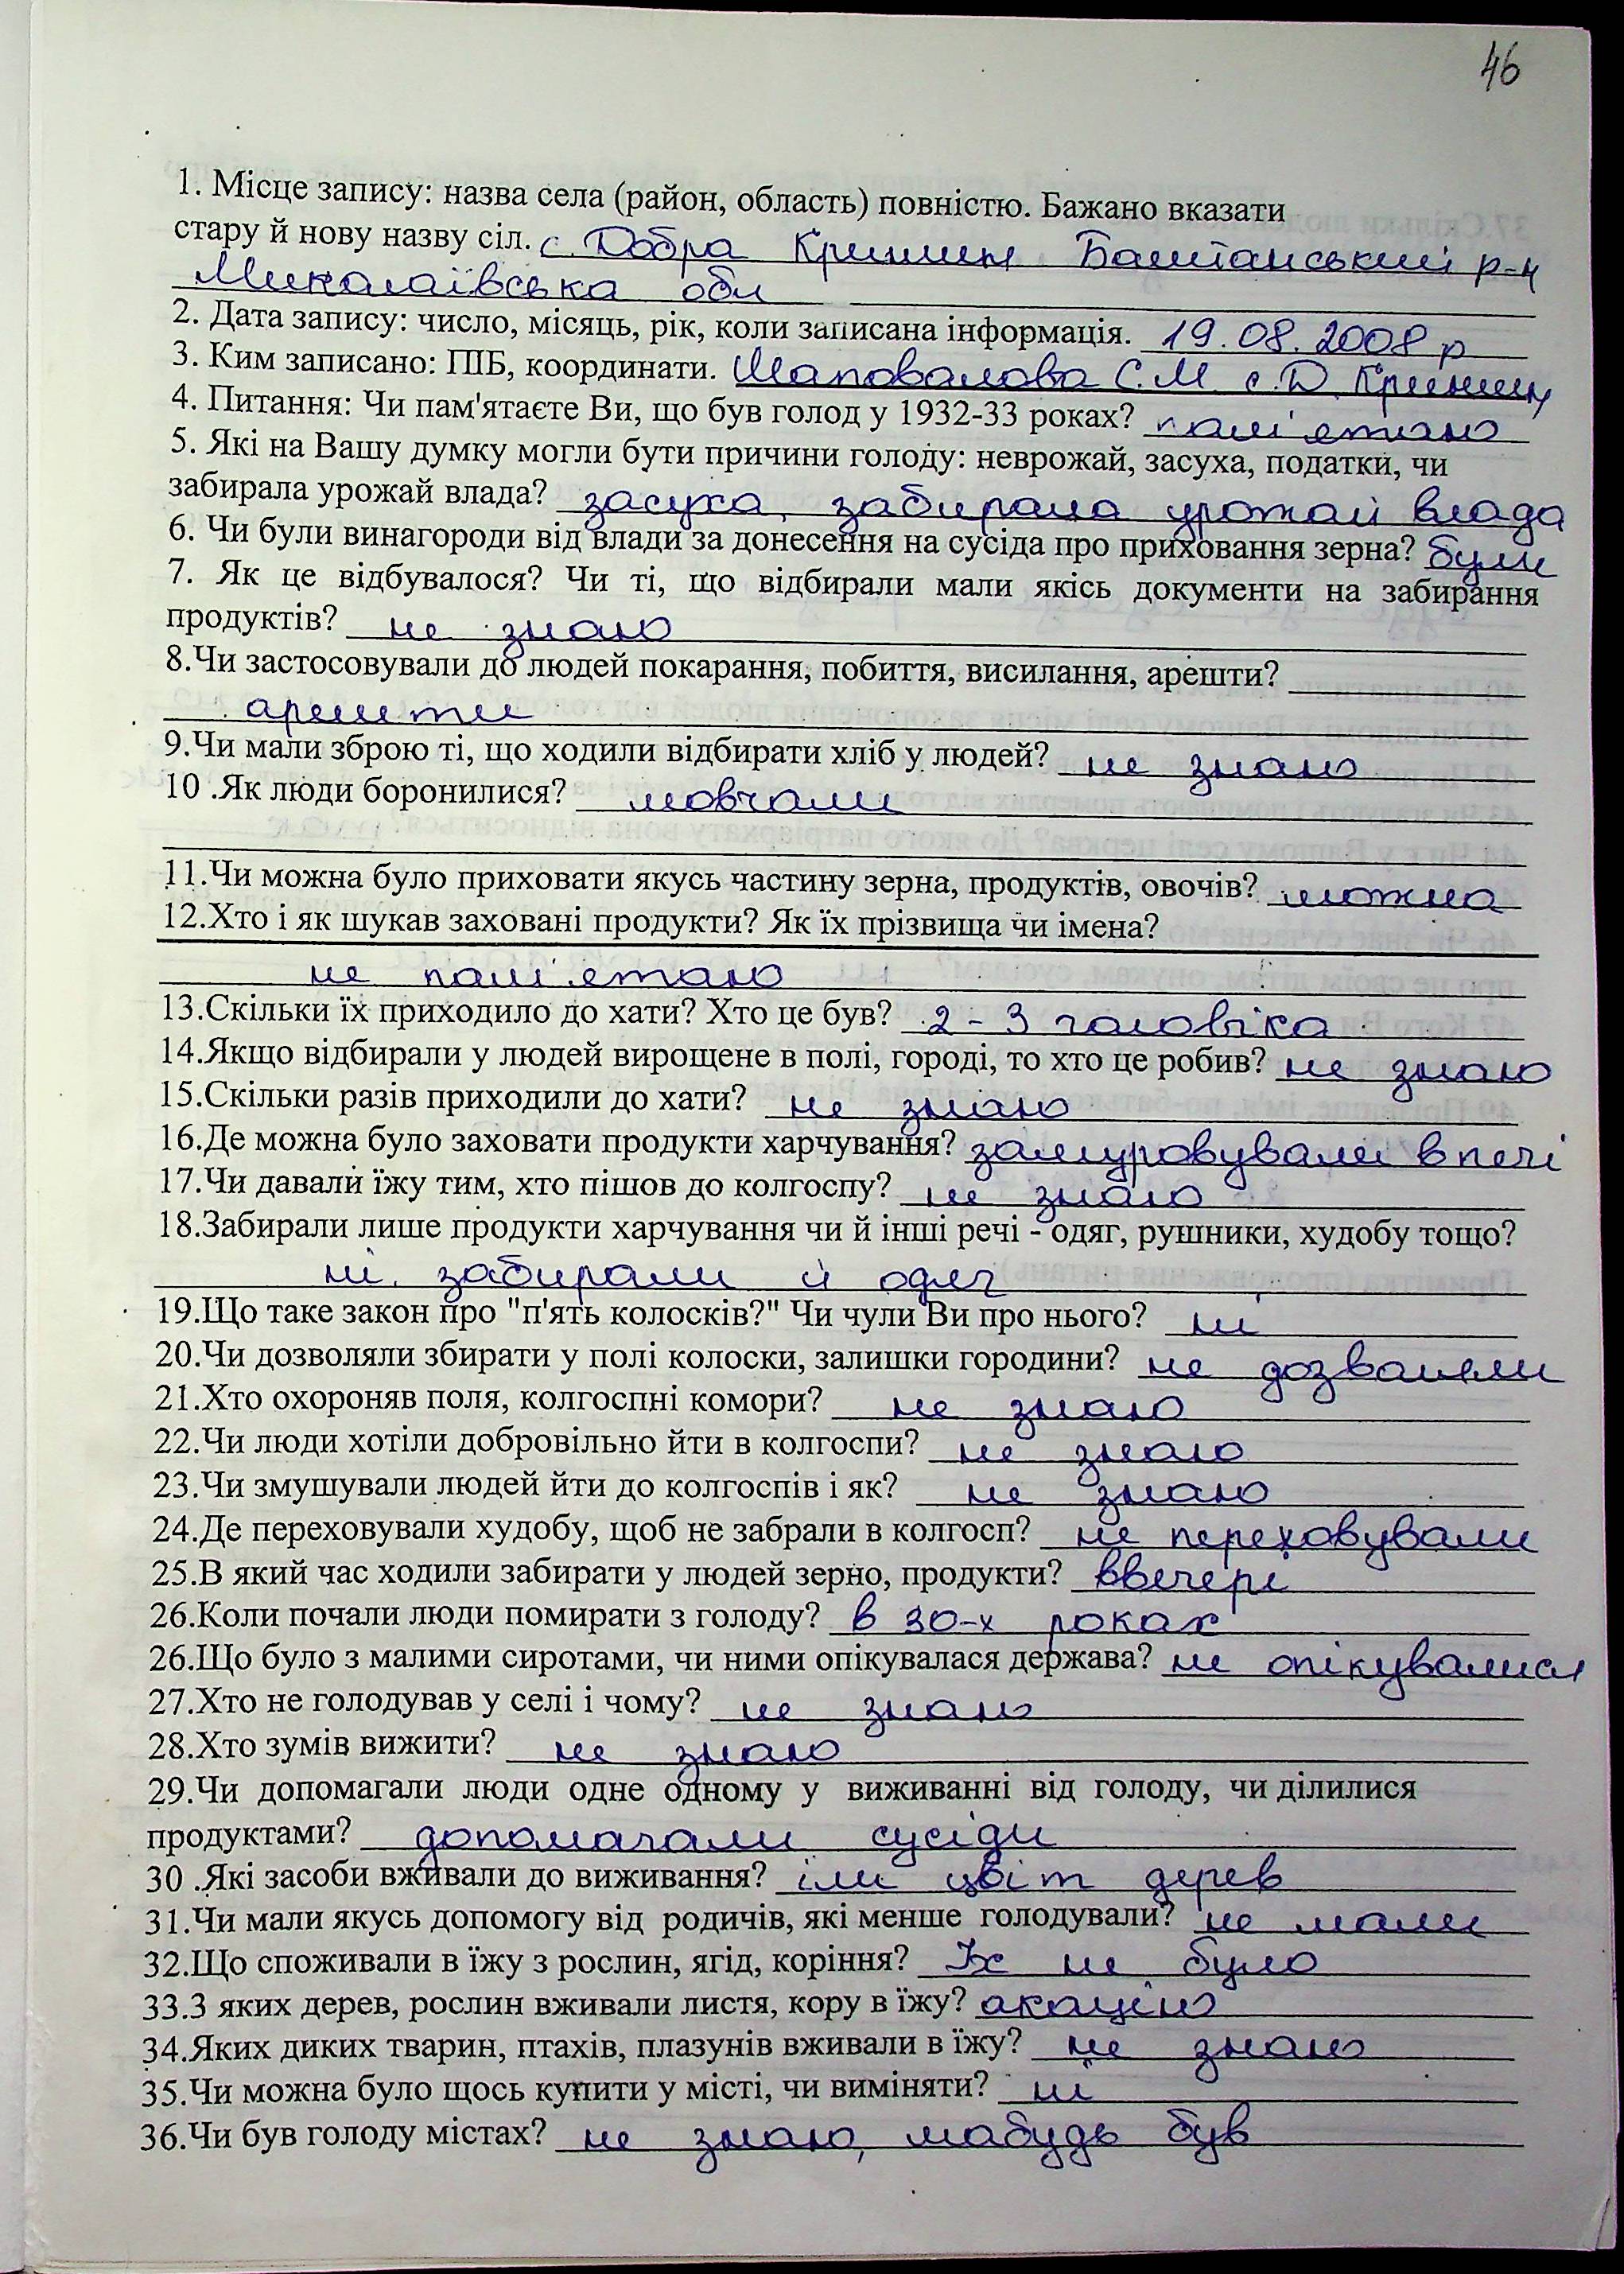 46
1. Місце запису: назва села (район, область) повністю. Бажано вказати
стару й нову назву сіл. с. Добра Криниця Баштанський р-н
Миколаївська обл
2. Дата запису: число, місяць, рік, коли записана інформація. 19.08.2008 р
3. Ким записано: ПІБ, координати. Шаповалова С.М. с. Д. Криниця
4. Питання: Чи пам'ятаєте Ви, що був голод у 1932-33 роках? пам'ятаю
5. Які на Вашу думку могли бути причини голоду: неврожай, засуха, податки, чи
забирала урожай влада? засуха, забирала урожай влада
6. Чи були винагороди від влади за донесення на сусіда про приховання зерна? були
7. Як це відбувалося? Чи ті, що відбирали мали якісь документи на забирання
продуктів? не знаю
8.Чи застосовували до людей покарання, побиття, висилання, арешти?
арешти
9.Чи мали зброю ті, що ходили відбирати хліб у людей? не знаю
10 .Як люди боронилися? мовчали
11.Чи можна було приховати якусь частину зерна, продуктів, овочів? можна
12.Хто і як шукав заховані продукти? Як їх прізвища чи імена?
не пам'ятаю
13.Скільки їх приходило до хати? Хто це був? 2-3 чоловіка
14.Якщо відбирали у людей вирощене в полі, городі, то хто це робив? не знаю
15.Скільки разів приходили до хати? не знаю
16.Де можна було заховати продукти харчування? замуровували в печі
17.Чи давали їжу тим, хто пішов до колгоспу? не знаю
18.Забирали лише продукти харчування чи й інші речі - одяг, рушники, худобу тощо?
ні. забирали й одяг
19.Що таке закон про "п'ять колосків?" Чи чули Ви про нього? ні
20.Чи дозволяли збирати у полі колоски, залишки городини? не дозваляли
21.Хто охороняв поля, колгоспні комори? не знаю
22.Чи люди хотіли добровільно йти в колгоспи? не знаю
23.Чи змушували людей йти до колгоспів і як? не знаю
24.Де переховували худобу, щоб не забрали в колгосп? не переховували
25.В який час ходили забирати у людей зерно, продукти? ввечері
26.Коли почали люди помирати з голоду? в 30-х роках
26.Що було з малими сиротами, чи ними опікувалася держава? не опікувалися
27.Хто не голодував у селі і чому? не знаю
28.Хто зумів вижити? не знаю
29.Чи допомагали люди одне одному у виживанні від голоду, чи ділилися
продуктами? допомагали сусіди
30 .Які засоби вживали до виживання? їли цвіт дерев
31.Чи мали якусь допомогу від родичів, які менше голодували? не мали
32.Що споживали в їжу з рослин, ягід, коріння? Їх не було
33.З яких дерев, рослин вживали листя, кору в їжу? акацію
34.Яких диких тварин, птахів, плазунів вживали в їжу? не знаю
35.Чи можна було щось купити у місті, чи виміняти? ні
36.Чи був голоду містах? не знаю, мабудь був